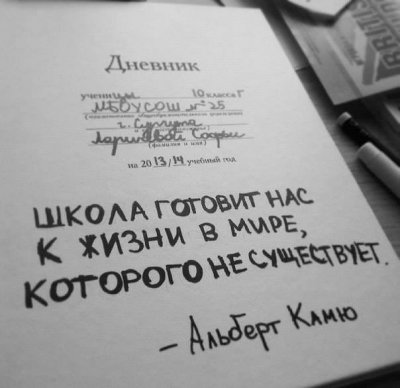 Дневник
ученицы 10 класса Г
МБОУСОШ №25
(наименование общеобразовательного учреждения)
г. Сургута
Лариновой Софьи
(фамилия и имя)
на 2013/14 учебный год
ШКОЛА ГОТОВИТ НАС
К ЖИЗНИ В МИРЕ,
КОТОРОГО НЕ СУЩЕСТВУЕТ.
– Альберт Камю